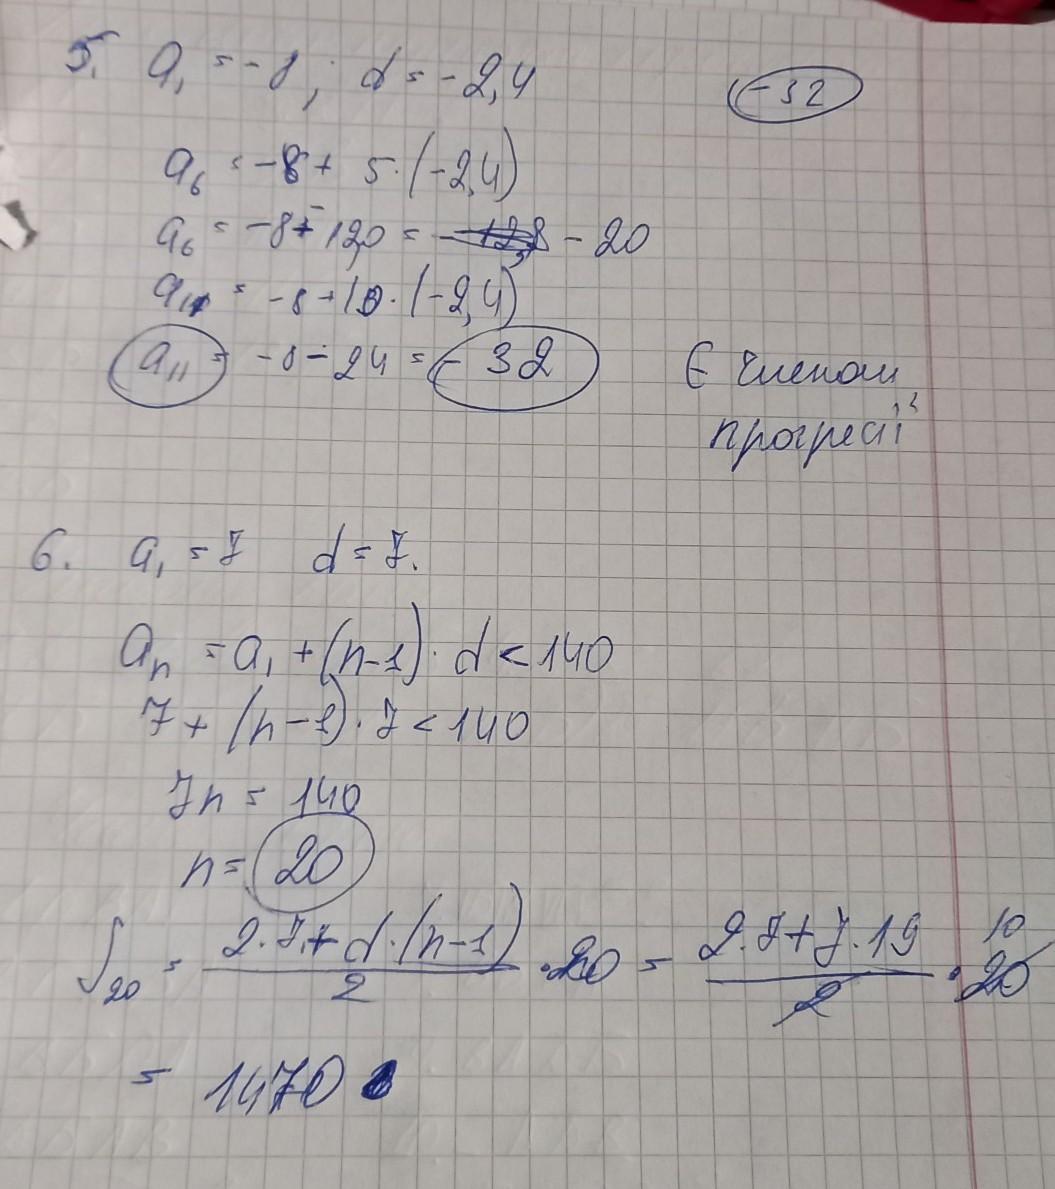 5. a₁ = -8 ; d = -2,4
-32
a₆ = -8 + 5·(-2,4)
a₆ = -8 + -12,0 = -20
a₁₁ = -8 + 10·(-2,4)
a₁₁ = -8 - 24 = -32
Є членом
прогресії
6. a₁ = 7 d = 7.
aₙ = a₁ + (n-1)·d < 140
7 + (n-1)·7 < 140
7n = 140
n = 20
S₂₀ = (2·7 + d·(n-1))/2 · 20 = (2·7 + 7·19)/2 · 20 10
= 1470